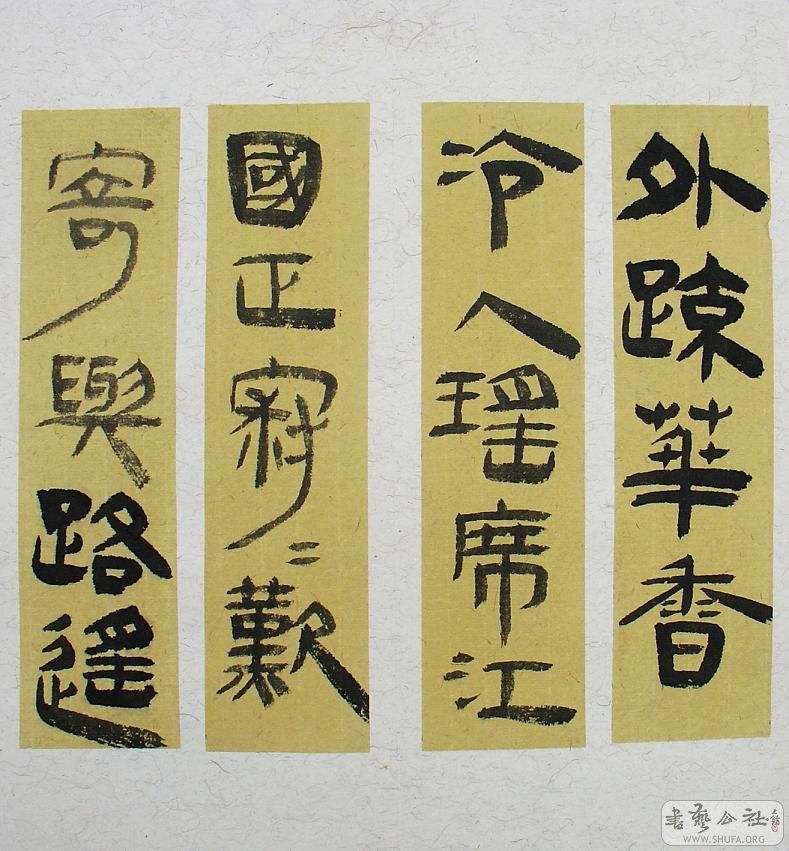 外踈華香
冷入瑤席江
國正寂〻歎
寄與路遙
書藝公社
WWW.SHUFA.ORG